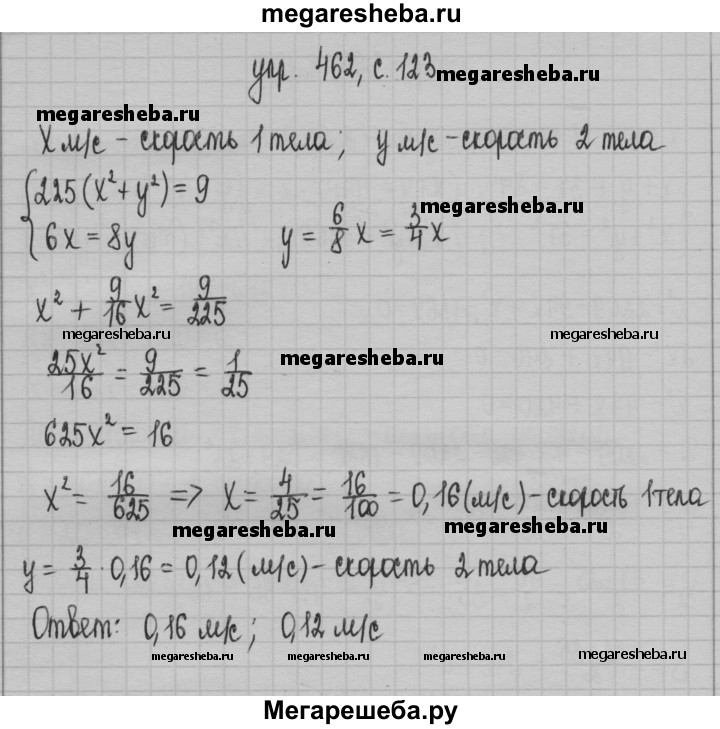 megaresheba.ru
упр. 462, с. 123 megaresheba.ru
megaresheba.ru
x м/с - скорость 1 тела; y м/с - скорость 2 тела
{ 225(x² + y²) = 9
megaresheba.ru
6x = 8y y = 6/8 x = 3/4 x
x² + 9/16 x² = 9/225
megaresheba.ru megaresheba.ru
25x²/16 = 9/225 = 1/25 megaresheba.ru
625x² = 16
x² = 16/625 => x = 4/25 = 16/100 = 0,16 (м/с) - скорость 1 тела
megaresheba.ru megaresheba.ru
y = 3/4 · 0,16 = 0,12 (м/с) - скорость 2 тела
Ответ: 0,16 м/с; 0,12 м/с
megaresheba.ru megaresheba.ru megaresheba.ru megaresheba.ru
Мегарешеба.ру